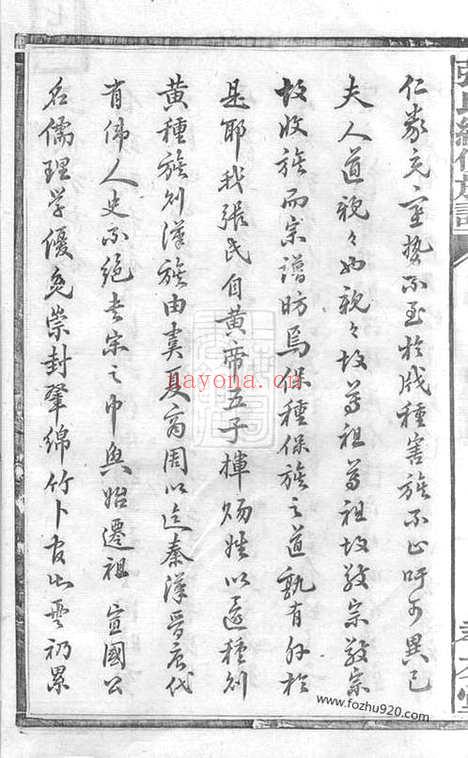 仁義充塞勢不至於戕種害族不止吁可異已
夫人道親々也親々故尊祖尊祖故敬宗敬宗
故收族而宗譜昉焉保種保族之道孰有外於
是耶我張氏自黃帝五子揮賜姓以還種別
黃種族別漢族由虞夏商周以迄秦漢晉唐代
有偉人史不絕書宋之中興始遷祖宣國公
名儒理學優免崇封肇綿竹卜宅
nayona.com
www.fozhu920.com